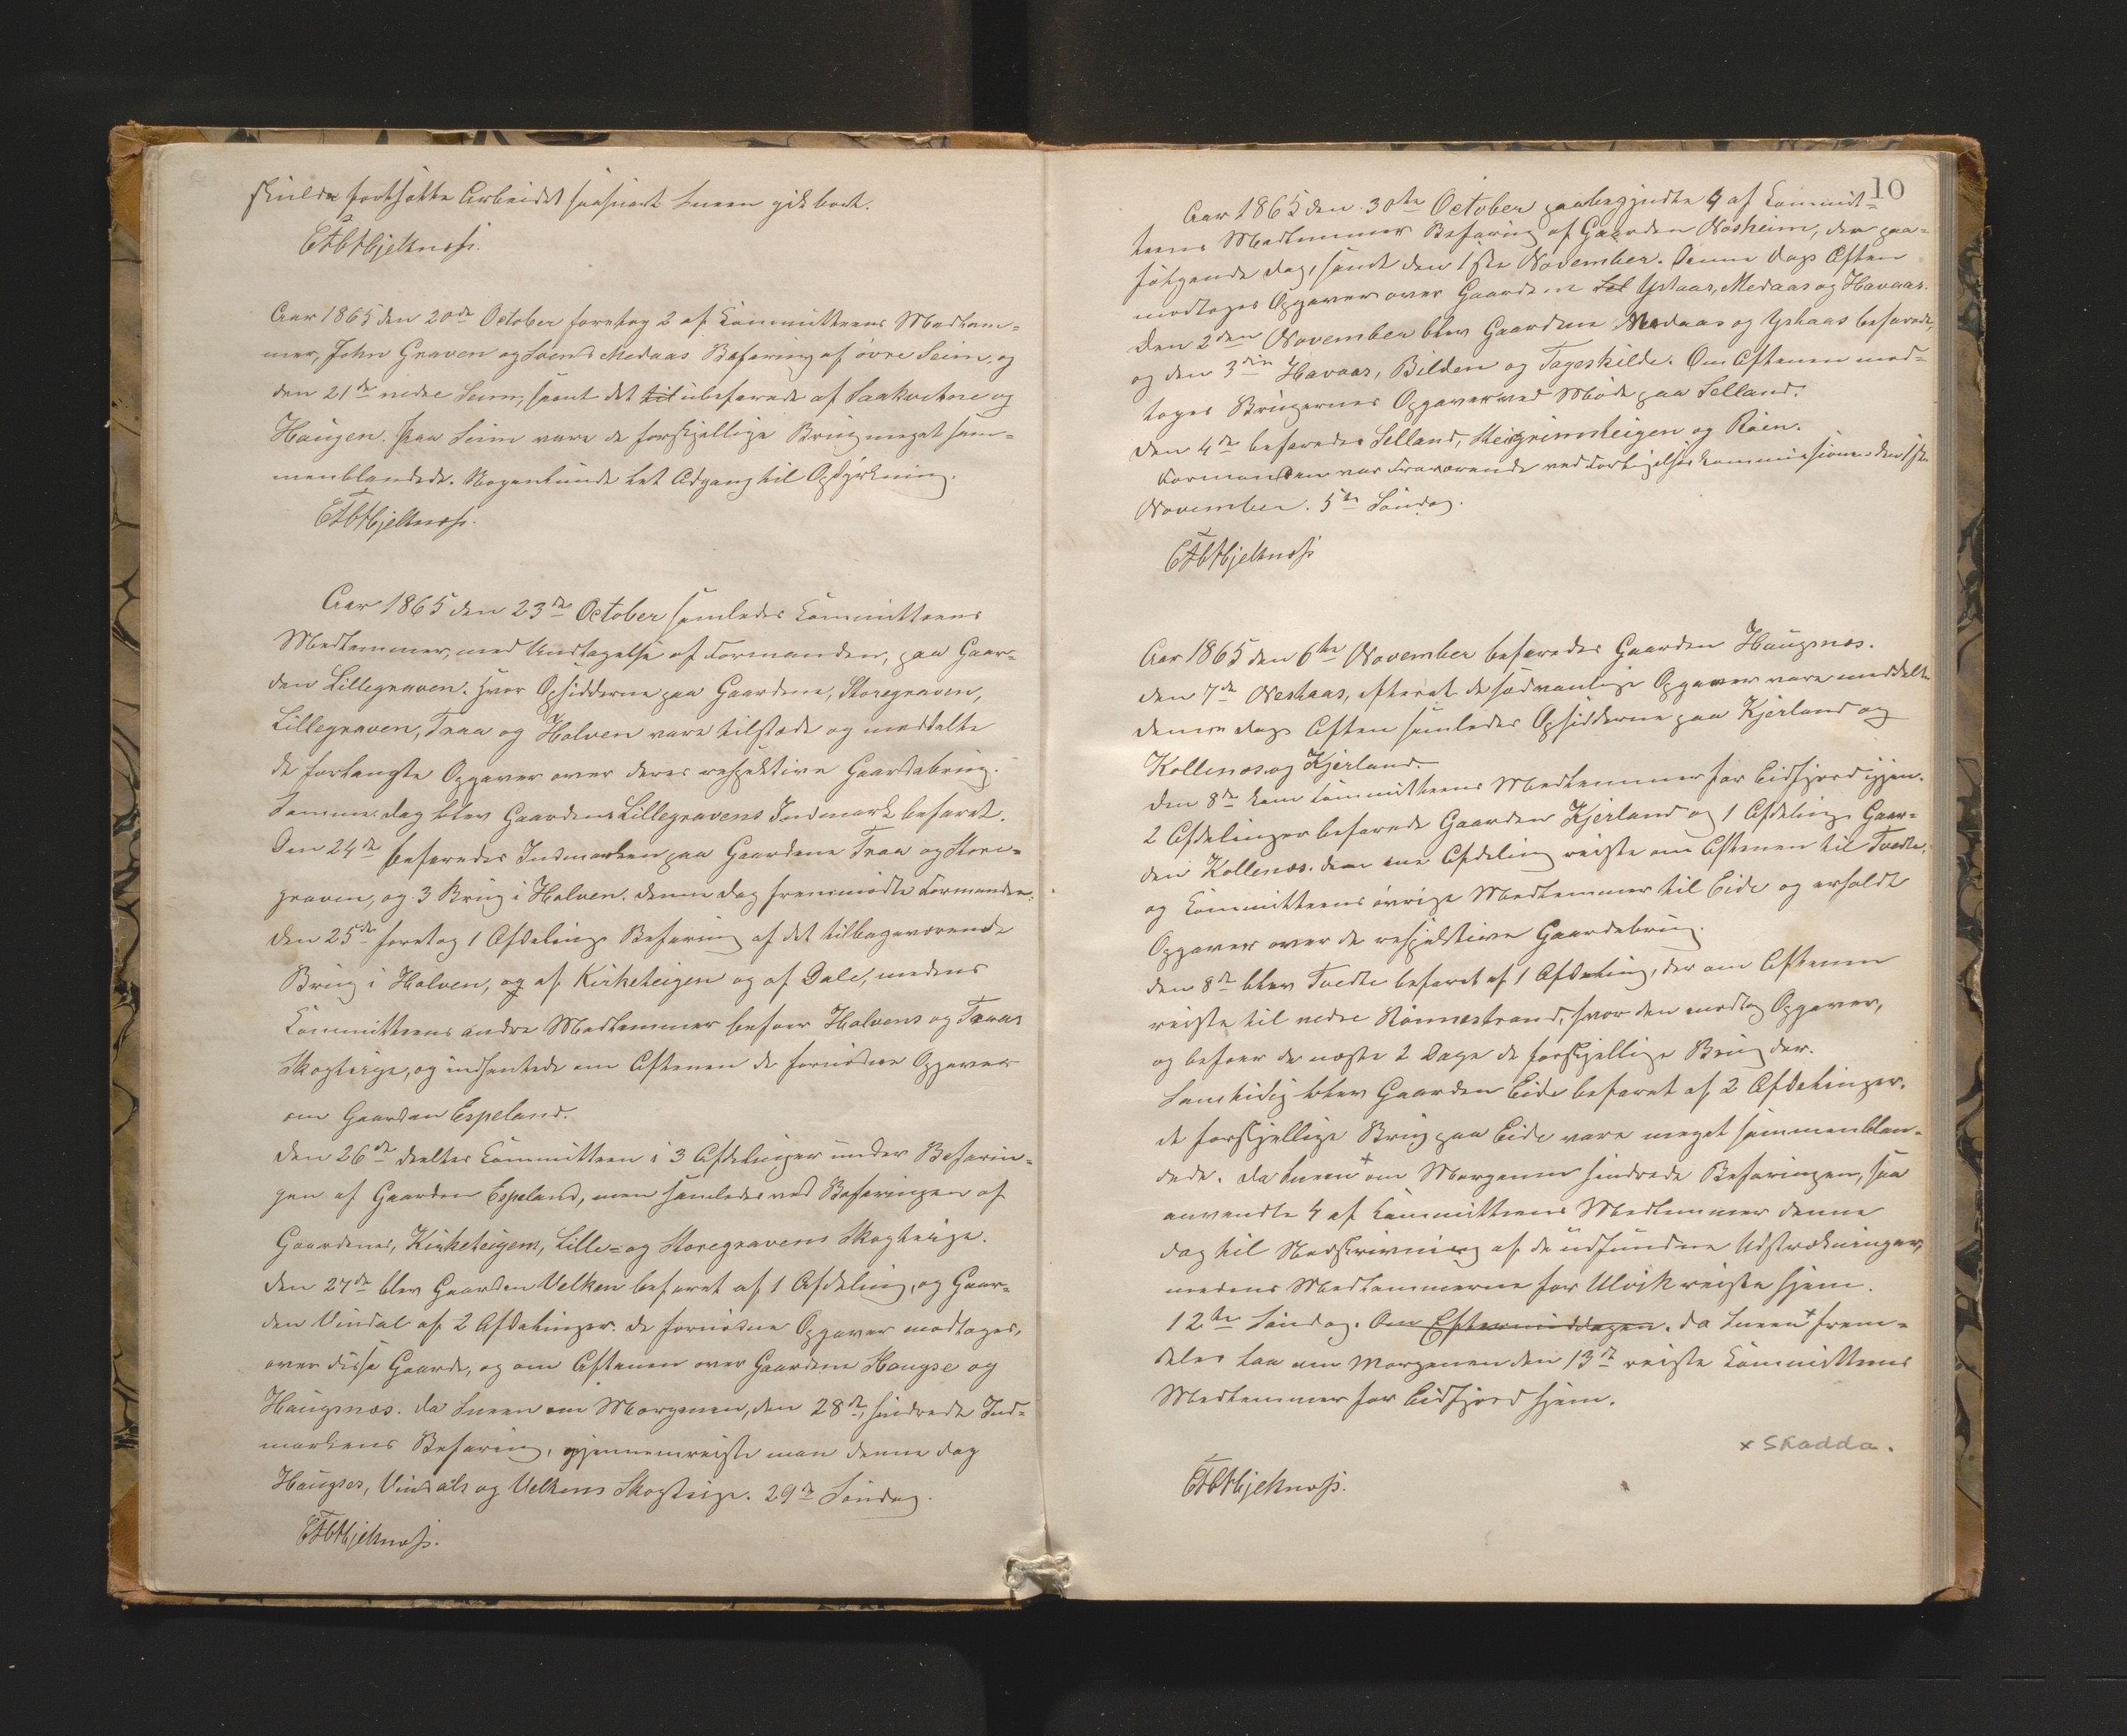 skulde fortsætte Arbeidet saasnart Sneen gik bort.
CABHjeltnæss.
Aar 1865 den 20de October foretog 2 af Committeens Medlem=
mer, John Graven og Svend Medaas Befaring af övre Seim, og
den 21de nedre Seim, samt det til ubefarede af Laakvitne og
Haugen. Paa Seim vare de forskjellige Brug meget sam=
menblandede. Nogenlunde let Adgang til Opdyrkning.
CABHjeltnæss.
Aar 1865 den 23de October samledes Committeens
Medlemmer, med Undtagelse af Formanden, paa Gaar=
den Lillegraven. Hvor Opsidderne paa Gaardene, Storegraven,
Lillegraven, Traa og Holven vare tilstæde og meddelte
de forlangte Opgaver over deres respektive Gaardsbrug.
Samme dag blev Gaardene Lillegravens Indmark befaret.
Den 24de befaredes Indmarken paa Gaardene Traa og Store=
graven, og 3 Brug i Holven. Denne Dag fremmödte Formanden.
Den 25de foretog 1 Afdeling Befaring af det tilbageværende
Brug i Holven, og af Kirketeigen og af Dale, medens
Committeens andre Medlemmer befoer Holvens og Traas
Skogteige, og indhentede om Aftenen de fornödne Opgaver
om Gaarden Espeland.
Den 26de deeltes Committeen i 3 Afdelinger under Befarin=
gen af Gaarden Espeland, men samledes ved Befaringen af
Gaardenes, Kirketeigens, Lille= og Storegravens Skogteige.
Den 27de blev Gaarden Velken befaret af 1 Afdeling, og Gaar=
den Vindal af 2 Afdelinger. De fornödne Opgaver modtoges,
over disse Gaarde, og om Aftenen over Gaardene Haugse og
Haugsnæs. Da Sneen om Morgenen, den 28de, hindrede Ind=
markens Befaring, gjennemreiste man denne dag
Haugses, Vindals og Velkens Skogteige. 29de Söndag.
CABHjeltnæss.
10
Aar 1865 den 30te October paabegyndte 4 af Committ=
teens Medlemmer Befaring af Gaarden Næsheim, den paa=
fölgende dag, samt den 1ste November. Denne dags Aften
modtoges Opgaver over Gaardene Sel Ystaas, Medaas og Havaas.
Den 2den November blev Gaardene Medaas og Ystaas befarede,
og den 3die Havaas, Bilden og Tageskilde. Om Aftenen mod=
toges Brugernes Opgaver ved Möde paa Selland.
Den 4de befaredes Selland, Heigrimsteigen og Röin.
Formanden var fraværende ved Forligelseskommissionen den 1ste
November. 5te Söndag.
CABHjeltnæss
Aar 1865 den 6te November befaredes Gaarden Haugsnæs.
Den 7de Nestaas, efterat de sædvanlige Opgaver vare meddelte
denne dags Aften samledes Opsidderne paa Kjerland og
Kollenæs og Kjerland.
Den 8de kom Committeens Medlemmer for Eidfjord igjen.
2 Afdelinger befarede Gaarden Kjerland og 1 Afdeling Gaar=
den Kollenæs. Den ene Afdeling reiste om Aftenen til Tvedte,
og Committeens övrige Medlemmer til Eide og erholdt
Opgaver over de respektive Gaardsbrug.
Den 8de blev Tvedte befaret af 1 Afdeling, der om Aftenen
reiste til nedre Rönnestrand, hvor den modtog Opgaver,
og befoer de næste 2 Dage de forskjellige Brug der.
Samtidig blev Gaarden Eide befaret af 2 Afdelinger.
De forskjellige Brug paa Eide vare meget sammenblan=
dede. Da Sneen x om Morgenen hindrede Befaringen, saa
anvendte 4 af Committeens Medlemmer denne
dag til Nedskrivning af de udfundne Udstrækninger,
medens Medlemmerne for Ulvik reiste hjem.
12te Söndag. Om Eftermiddagen. Da Sneen x frem=
deles laa om Morgenen den 13de reiste Committeens
Medlemmer for Eidfjord hjem.
x Skadda.
CABHjeltnæss.